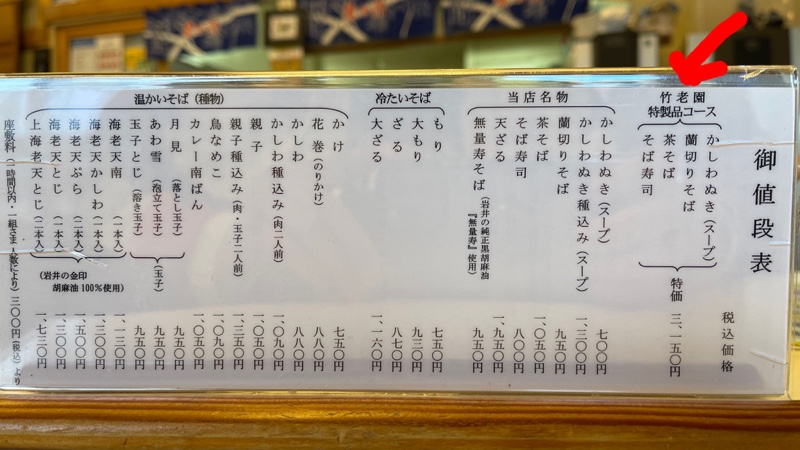 御値段表
税込価格
竹老園
特製品コース
かしわぬき(スープ)
蘭切りそば
茶そば
そば寿司
特価 三、一五〇円
当店名物
かしわぬき(スープ) 七〇〇円
かしわぬき種込み(スープ) 一、三〇〇円
蘭切りそば 九五〇円
茶そば 一、〇五〇円
そば寿司 八〇〇円
天ざる 一、五五〇円
無量寿そば(岩井の純正黒胡麻油『無量寿』使用) 九五〇円
冷たいそば
もり 七五〇円
大もり 九三〇円
ざる 八七〇円
大ざる 一、一六〇円
温かいそば(種物)
かけ 七五〇円
花巻(のりかけ) 八八〇円
かしわ 八八〇円
かしわ種込み(肉二人前) 一、〇九〇円
親子 一、〇五〇円
親子種込み(肉・玉子二人前) 一、三五〇円
鳥なめこ 九五〇円
カレー南ばん 一、〇五〇円
月見(落とし玉子) 九五〇円
あわ雪(泡立て玉子) 九五〇円
玉子とじ(溶き玉子) 九五〇円
(玉子)
海老天南(一本入) 一、一三〇円
海老天かしわ(二本入) 一、三〇〇円
海老天ぷら(二本入) 一、五〇〇円
海老天とじ(二本入) 一、三〇〇円
上海老天とじ(二本入) 一、七三〇円
(岩井の金印
胡麻油100%使用)
座敷料(一時間以内・一組さま人数により)三〇〇円(税込)より